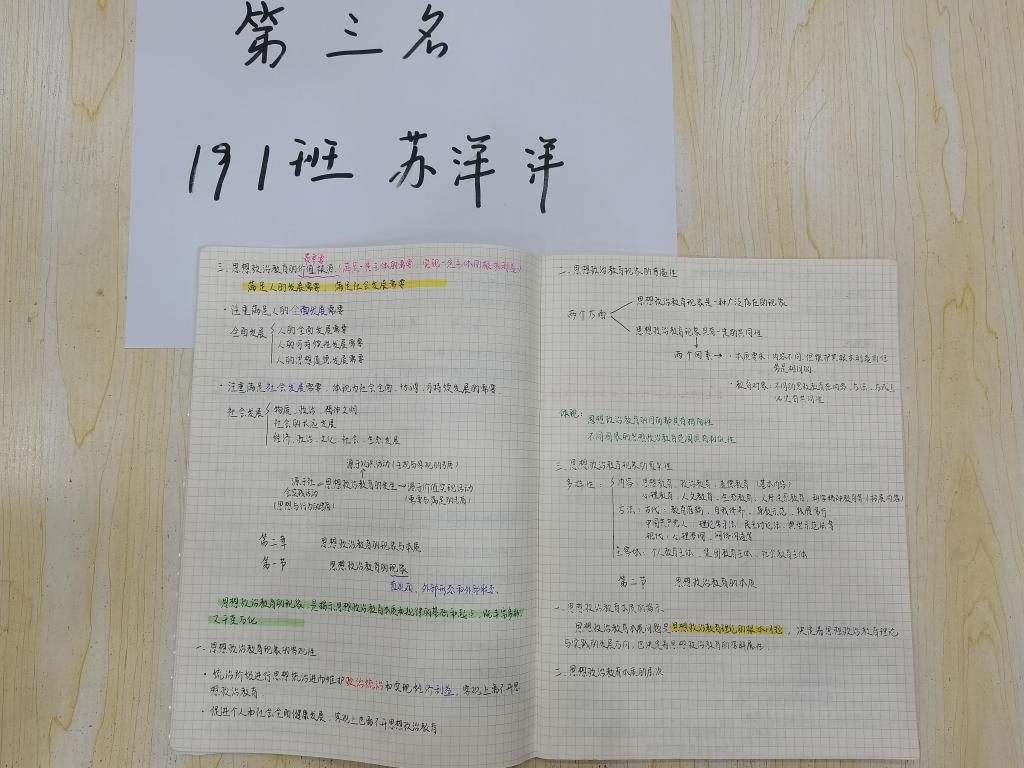 第三名
191班 苏洋洋
三. 思想政治教育的价值根源 (满足一定主体的需要, 实现一定主体的根本利益)
满足人的发展需要, 满足社会发展需要
· 注重满足人的全面发展需要
全面发展
人的全面发展需要
人的可持续性发展需要
人的思想道德发展需要
· 注重满足社会发展需要, 体现为社会全面、协调、可持续发展的需要
社会发展
物质、政治、精神文明
社会的大应发展
经济、政治、文化、社会、生态发展
源于认识活动(主观与客观的矛盾)
源于社会实践活动 ← 思想政治教育的发生 → 源于价值实现活动
(思想与行为的矛盾)
(需要与满足的矛盾)
第二章 思想政治教育的现象与本质
第一节 思想政治教育的现象
直观面, 外部形态和外部状态.
思想政治教育的现象, 是揭示思想政治教育本质和规律的基础和起点, 纷繁
又千变万化.
一. 思想政治教育现象的客观性
· 统治阶级进行思想统治进而维护政治统治和实现经济利益, 客观上离不开思
想政治教育.
· 促进个人和社会全面健康发展, 客观上也离不开思想政治教育
二. 思想政治教育现象的普遍性
两个方面
思想政治教育现象是一种广泛存在的现象
思想政治教育现象具有一定的共同性
两个因素 → · 本质要求: 内容不同, 但维护其根本利益的任
务是相同的.
· 教育对象: 不同的思政教育在内容、方法、方式上
必定有共同性
体现:
思想政治教育的目的都具有相同性
不同国家的思想政治教育范围具有相似性
三. 思想政治教育现象的复杂性
多样性:
内容: 思想教育, 政治教育, 道德教育 (基本内容)
心理教育, 人文教育, 生态教育, 人际关系教育, 科学精神教育等 (拓展内容)
方法: 古代: 教育灌输, 自我修养, 身教示范, 践履笃行
中国共产党人: 理论学习法, 民主讨论法, 典型示范法等
现代: 心理咨询, 网络沟通等
主客体: 个人教育主体, 集团教育主体, 社会教育主体
第二节 思想政治教育的本质
一. 思想政治教育本质的揭示
思想政治教育本质问题是思想政治教育理论的根本问题, 决定着思想政治教育理论
与实践的发展方向, 也决定着思想政治教育的学科属性.
二. 思想政治教育本质的层次